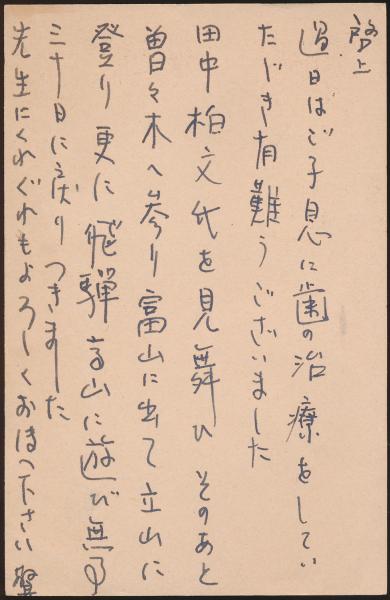 啓上
過日はご子息に歯の治療をしてい
たゞき有難うございました
田中柏文代を見舞ひそのあと
曽々木へ参り富山に出て立山に
登り更に飛騨高山に遊び無事
三十日に戻りつきました
先生にくれぐれもよろしくお傳へ下さい